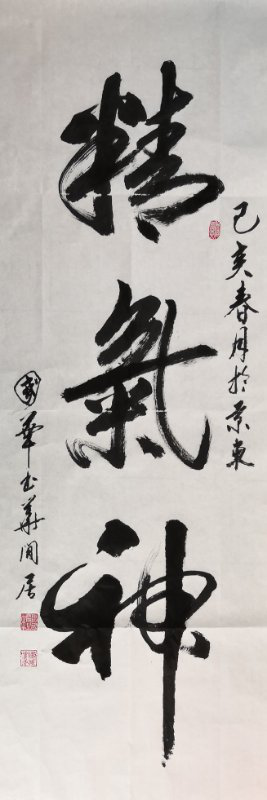 精氣神
己亥春月於景東
國華書於華閒居